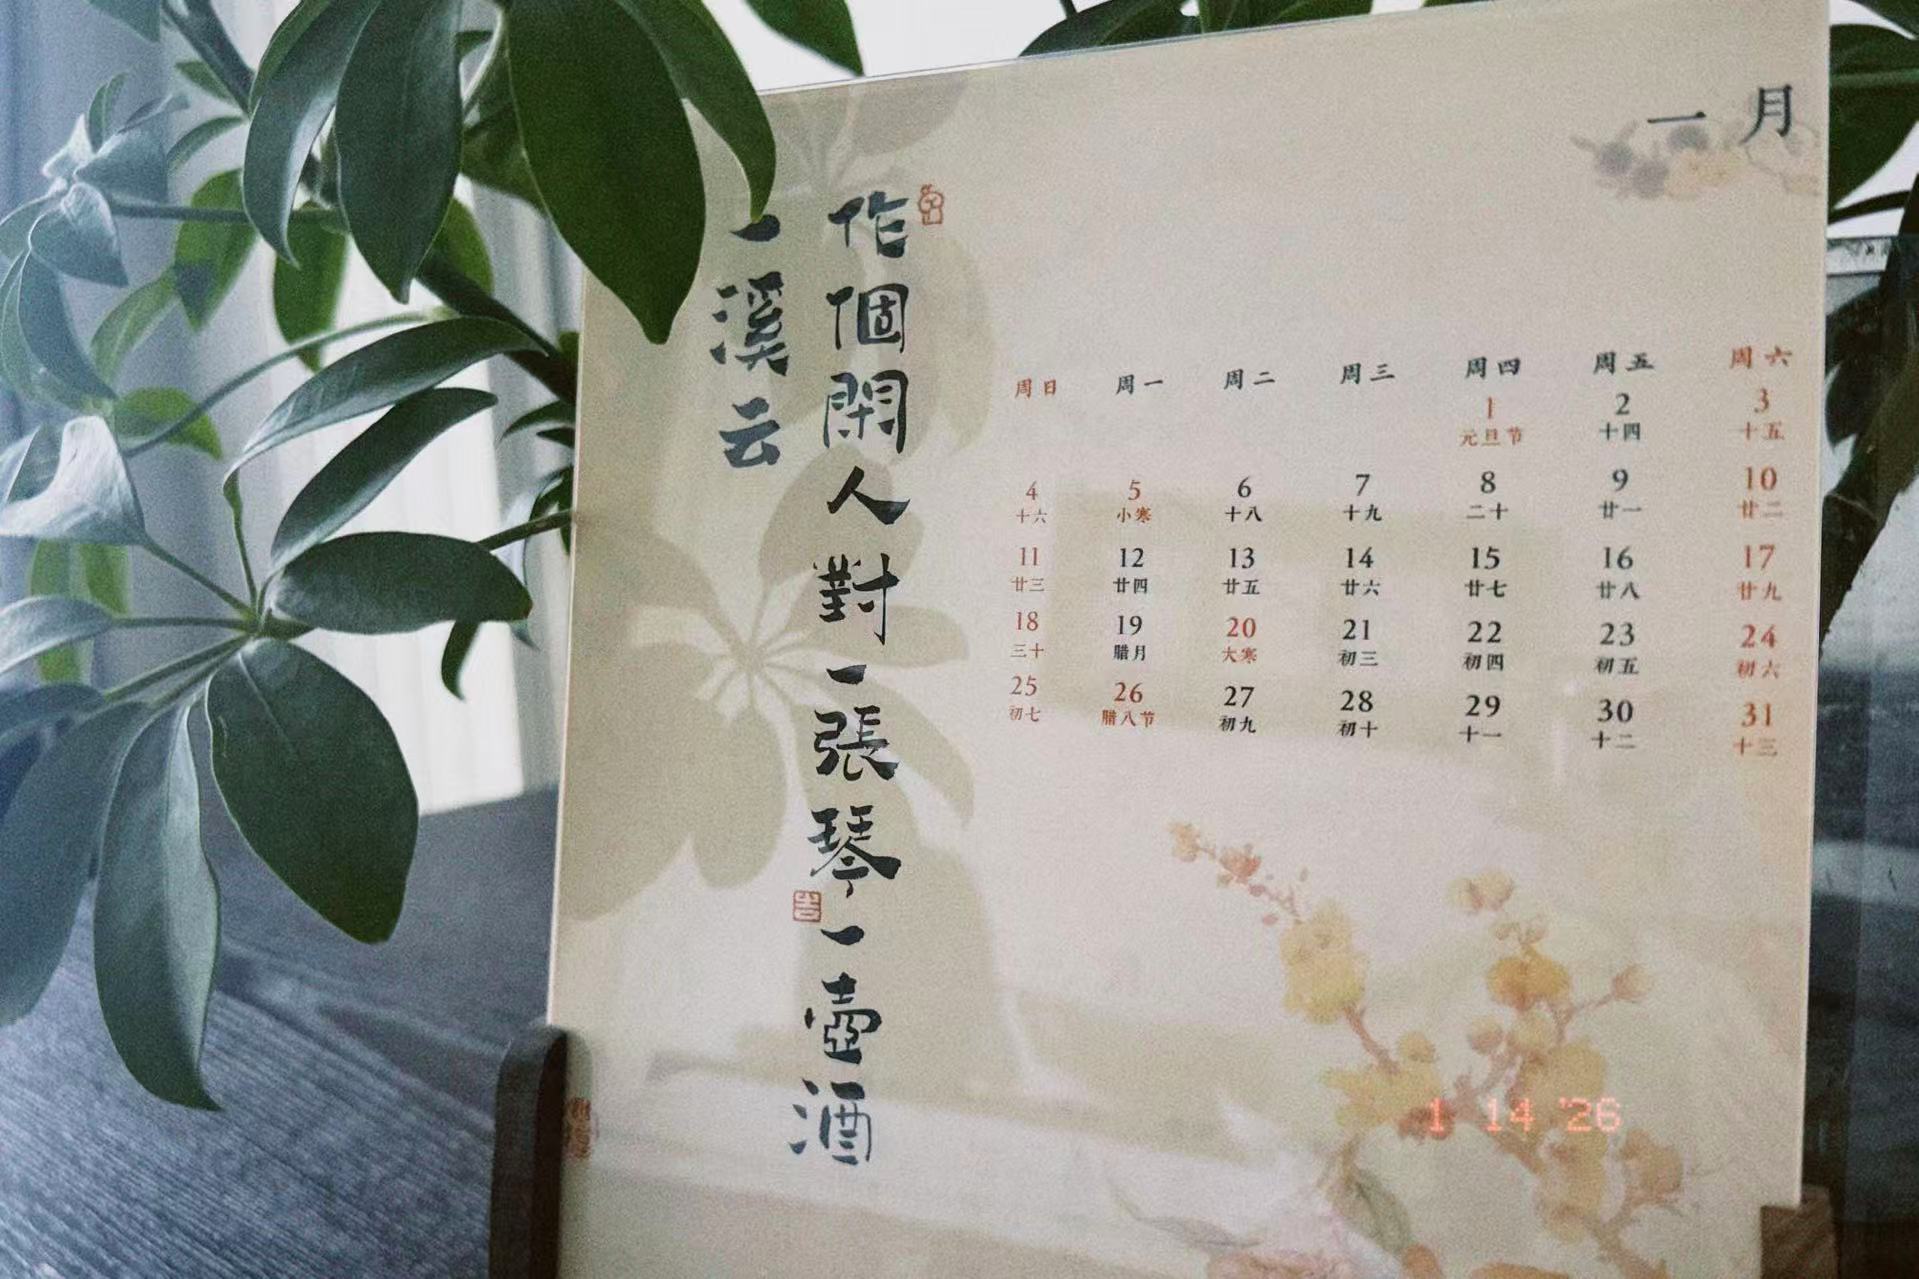 一月
作個閑人對一張琴一壺酒
一溪云
周日 周一 周二 周三 周四 周五 周六
1 2 3
元旦节 十四 十五
4 5 6 7 8 9 10
十六 小寒 十八 十九 二十 廿一 廿二
11 12 13 14 15 16 17
廿三 廿四 廿五 廿六 廿七 廿八 廿九
18 19 20 21 22 23 24
三十 腊月 大寒 初三 初四 初五 初六
25 26 27 28 29 30 31
初七 腊八节 初九 初十 十一 十二 十三
1 14 '26